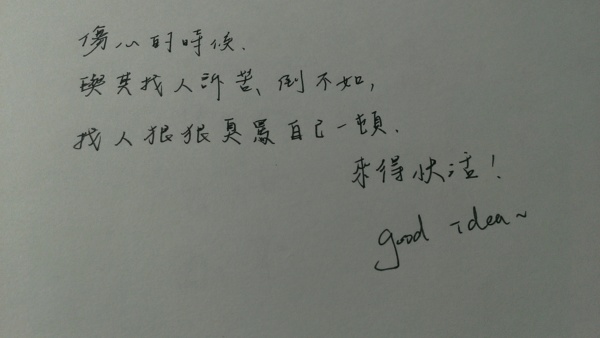 傷心的時候.
與其找人訴苦、倒不如,
找人狠狠臭罵自己一頓.
來得快活!
good idea~